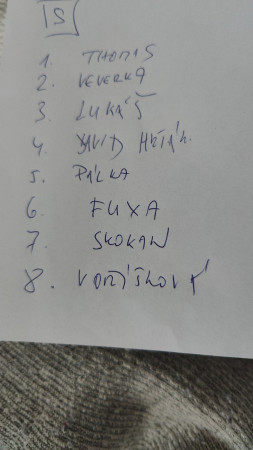 S
1. THOMS
2. VEVERKA
3. LUKÁŠ
4. DAVID
5. PÁLKA
6. FUXA
7. SKOKAN
8. VOŘÍŠKOVÁ